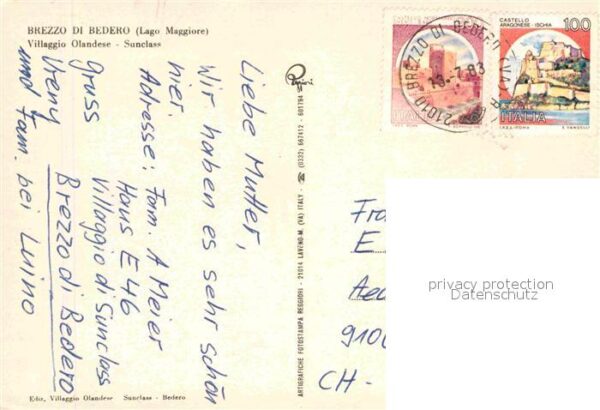 BREZZO DI BEDERO (Lago Maggiore)
Villaggio Olandese - Sunclass
Liebe Mutter,
Wir haben es sehr schön
hier.
Adresse: Fam. A Meier
Haus E 46
Villaggio di Sunclass
Brezzo di Bedero
bei Luino
gruss
Vreny
und Fam.
Ediz. Villaggio Olandese Sunclass - Bedero
ARTIGRAFICHE FOTOSTAMPA REGGIORI - 21014 LAVENO-M. (VA) ITALY - ☎ (0332) 667412 - 601794
21010 BREZZO DI BEDERO
13.-7.83
CASTELLO
ARAGONESE - ISCHIA
100
ITALIA
I.P.Z.S. ROMA
E. VANGELLI
Fra
E
Aec
9100
CH -
privacy protection
Datenschutz